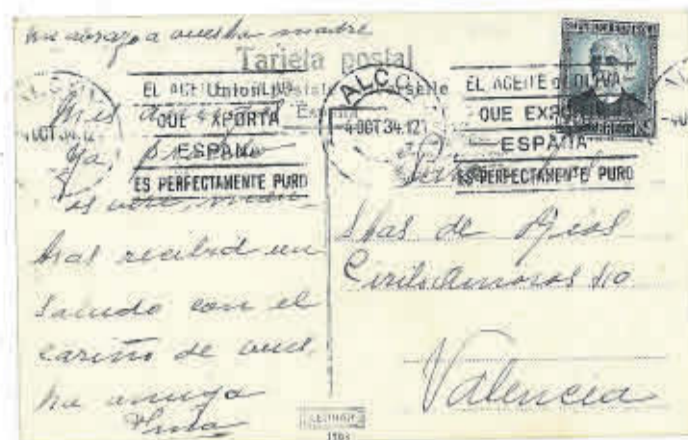 un abrazo a vuestra madre
Tarjeta postal
Unión Postal
España
EL ACEITE OLIVA
QUE EXPORTA
ESPAÑA
ES PERFECTAMENTE PURO
ALCO
4 OCT 34.12
EL ACEITE DE OLIVA
QUE EXPORTA
ESPAÑA
ES PERFECTAMENTE PURO
4 OCT 34.12
Mis
Ya
os veré, mien
tras recibid un
saludo con el
cariño de vues
tra amiga
Sras de
Cirilo Amoros
Valencia